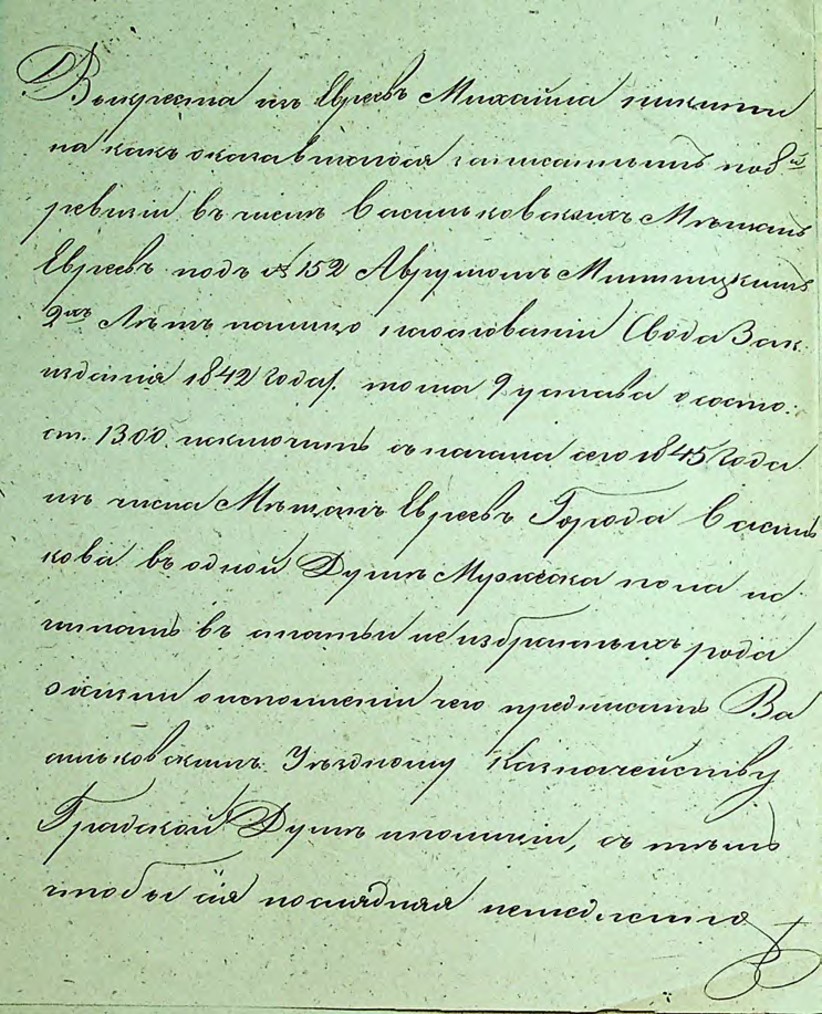 Выкреста изъ Евреевъ Михаила Никити
на какъ оказавшагося записаннымъ по 8й
ревизіи въ числѣ Васильковскихъ Мѣщанъ
Евреевъ подъ № 152 Аврумомъ
2хъ Лѣтъ на основаніи Свода Зак.
изданія 1842 года/. тома 9 устава о состо:
ст. 1300. исключить съ начала сего 1845 года
изъ числа Мѣщанъ Евреевъ Города Василь
кова въ одной Душѣ Мужеска пола и
въ не избравшихъ рода
жизни о исполненіи чего предписать Ва
сильковскимъ Уѣздному Казначейству
Градской Думѣ и полиціи, съ тѣмъ
чтобы сія послѣдняя немедленно